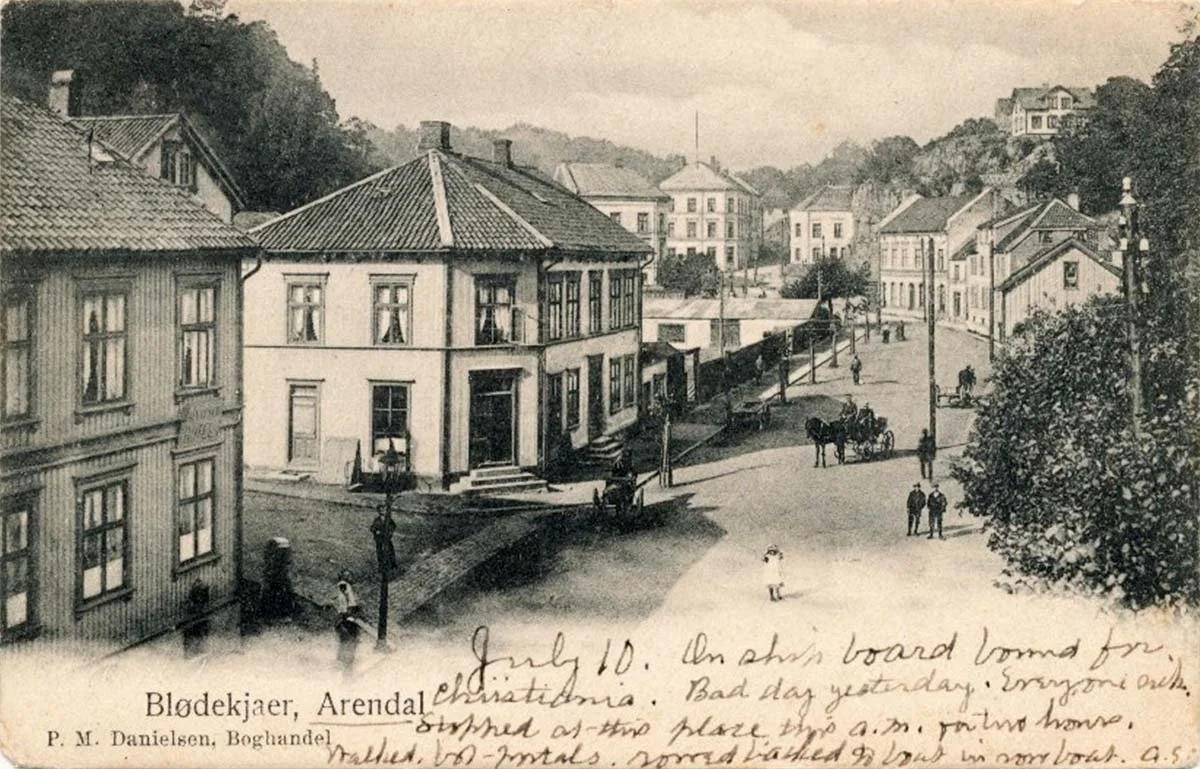 July 10. On ship board bound for
Blødekjaer, Arendal
Christiania. Bad day yesterday. Everyone sick.
Stopped at this place this a.m. for two hours.
P. M. Danielsen, Boghandel
Walked, bot postals, rowed back to boat in row boat. a.s.